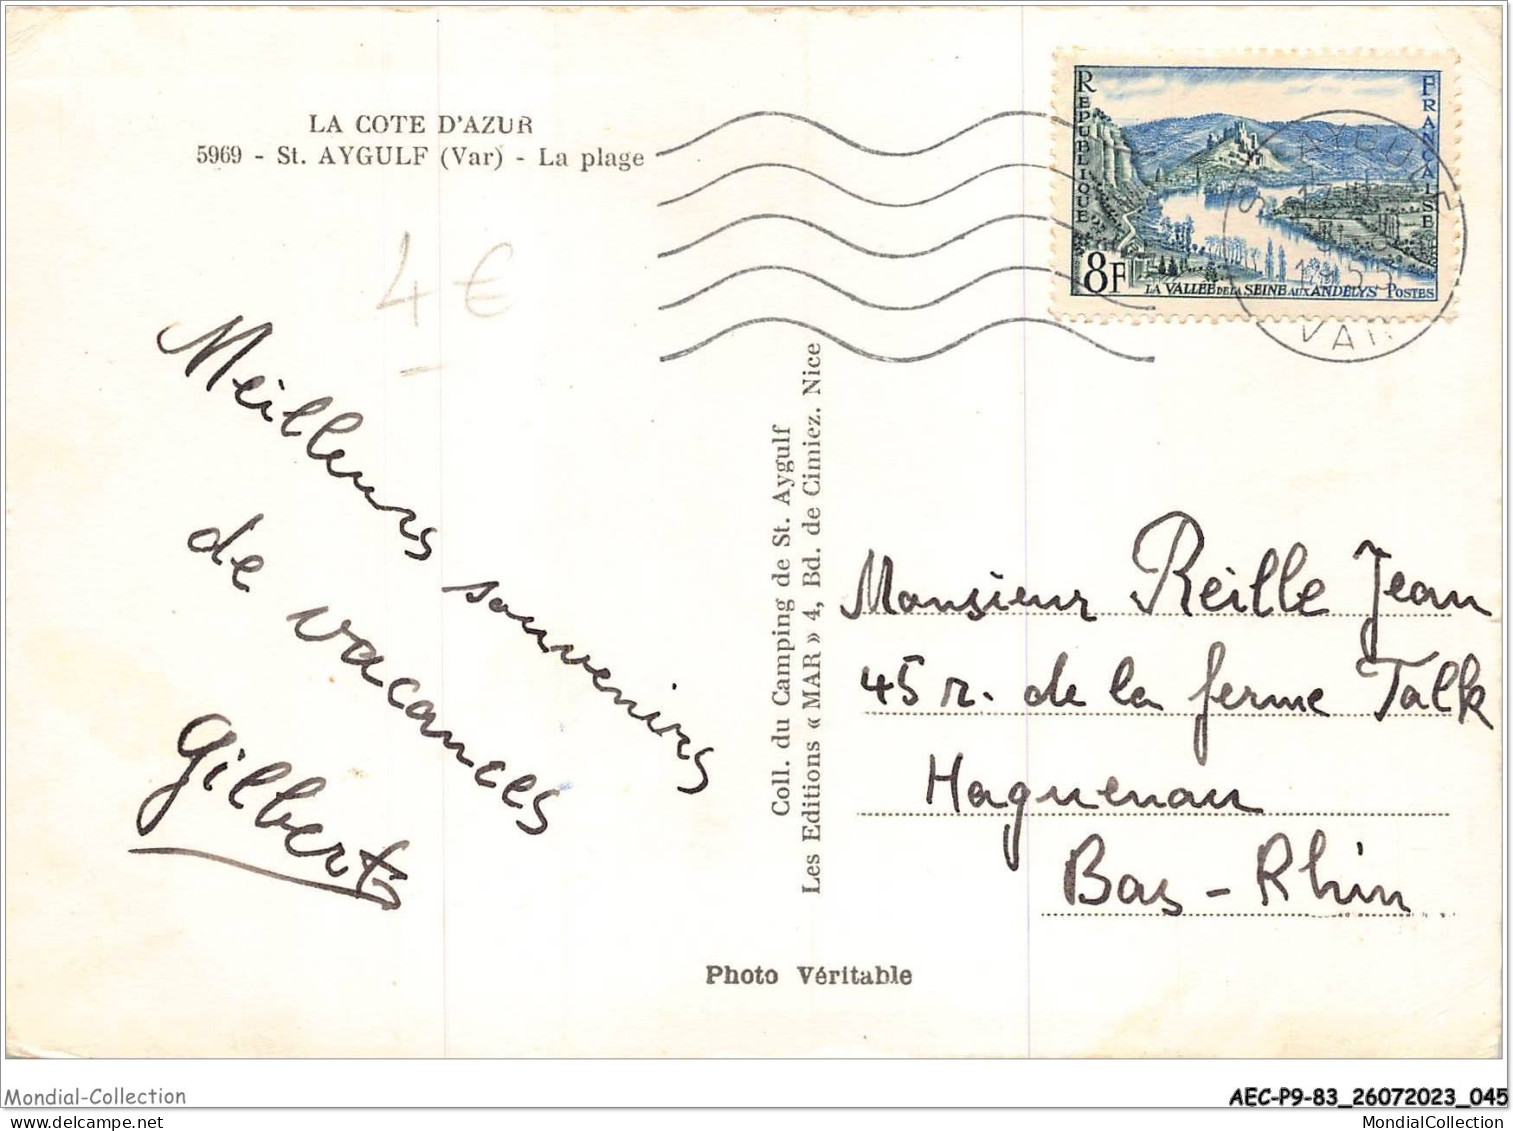 LA COTE D'AZUR
5969 - St. AYGULF (Var) - La plage
4€
Meilleurs souvenirs
de vacances
Gilbert
Coll. du Camping de St. Aygulf
Les Editions « MAR » 4, Bd. de Cimiez. Nice
REPUBLIQUE
FRANCAISE
8F
LA VALLÉE DE LA SEINE AUX ANDELYS POSTES
AYGULF
VAR
Monsieur Reille Jean
45 r. de la ferme Falk
Haguenau
Bas-Rhin
Photo Véritable
Mondial-Collection
AEC-P9-83_26072023_045
MondialCollection